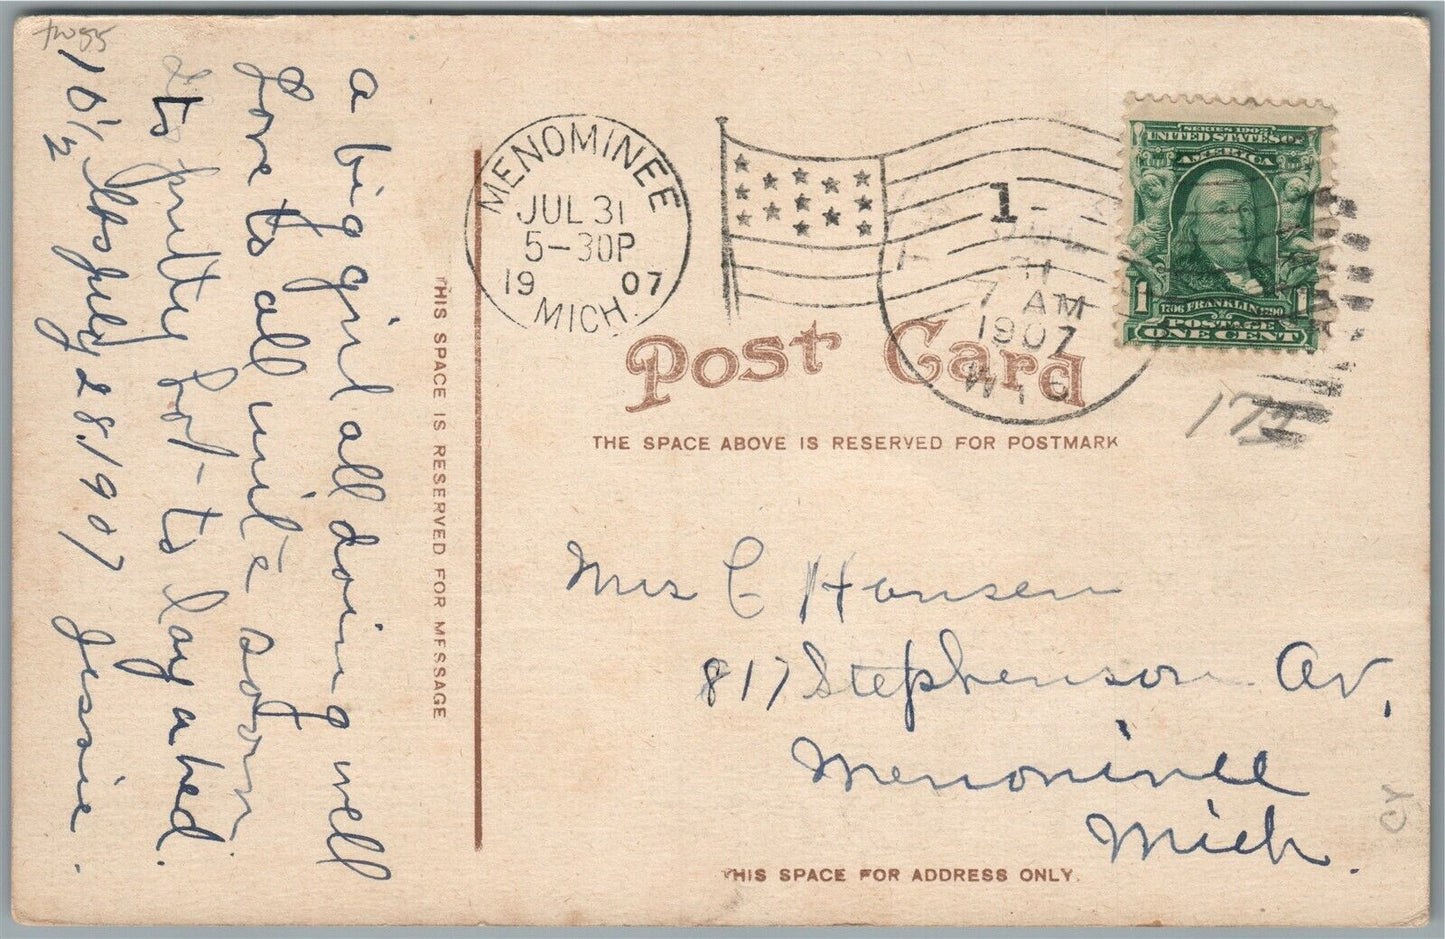 a big girl all doing well
Love to all write soon
to pretty hot to day a bed.
1 6½ lbs July 28 1907 Jessie.
THIS SPACE IS RESERVED FOR MESSAGE
MENOMINEE
JUL 31
5-30P
1907
MICH.
1
JUL
31
7 AM
1907
WIS
SERIES 1902
UNITED STATES OF
AMERICA
1706 FRANKLIN 1790
1 1
POSTAGE
ONE CENT
Post Card
THE SPACE ABOVE IS RESERVED FOR POSTMARK
Mrs C Hansen
817 Stephenson Av,
Menominee
Mich.
THIS SPACE FOR ADDRESS ONLY.
CY